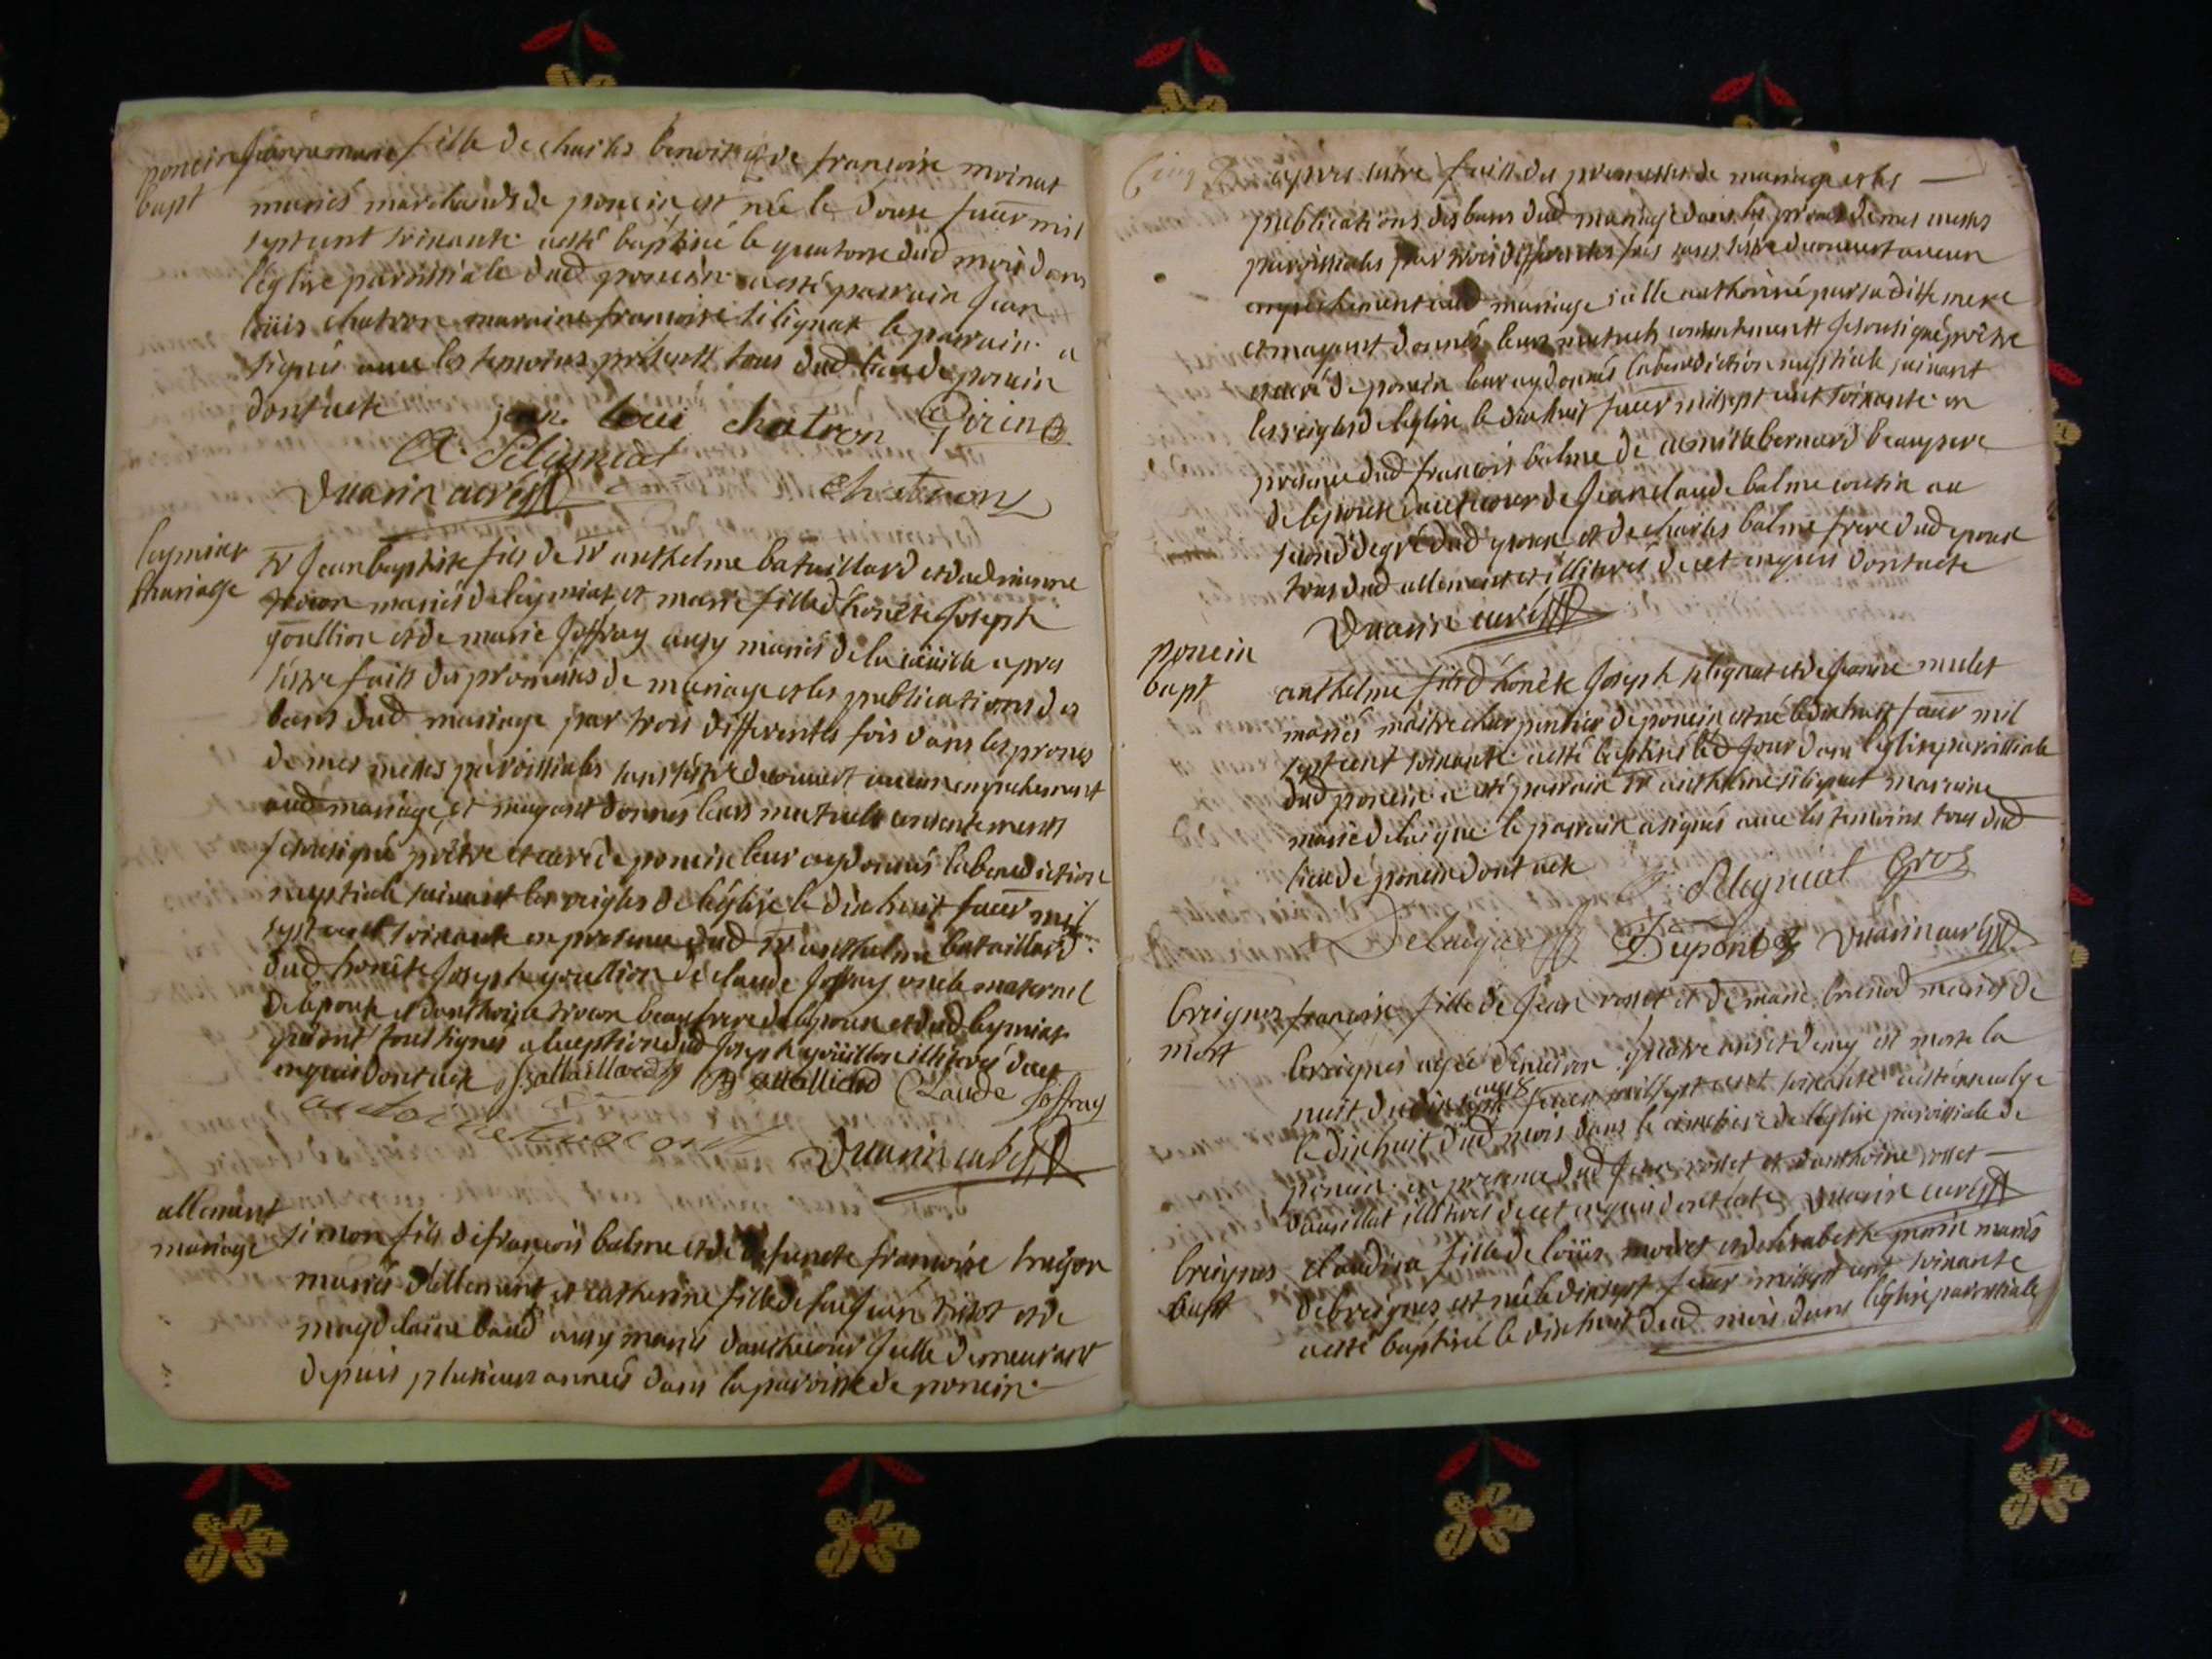 poncin jeanne marie fille de charles benoit et de francoise moinat
bapt mariés marchands de poncin est née le douse fuer mil
sept cent soixante a esté baptisée le quatorse dud mois dans
l'églize paroissiale dud poncin a esté parrain Jean
loüis chatron maraine francoise silignat le parrain a
signés avec les temoins présentt tous dud lieu de poncin
dont acte jean loui chatron Girin
A Selignat
vuarin curé chatron
leymiat sr Jean baptiste fils de sr anthelme bataillard et dadrianne
mariage trocon mariés de leymiat et marie fille d'honête Joseph
goullion et de marie Joffray ausy mariés de la apres
s'estre faits des promesses de mariage et les publications des
bans dud mariage par trois differentes fois dans les prones
de mes messes paroissiales sans s'estre decouvert aucun empechement
aud mariage et mayant donnés leurs mutuels consentements
Je sousigné prêtre et curé de poncin leur ay donnés la benediction
nuptiale suivant les reigles de l'églize le dix huit fuer mil
sept cent soixante en presence dud sr anthelme bataillard
dud honête Joseph goullion de claude Joffray oncle maternel
de lepouse et danthoine trocon beau frere de lepoux et dud leymiat
qui ont tous signés a lexeption dud Joseph goüillon illiteré de ce
enquis dont acte Battaillard B attallierd Claude Joffray
antoine trocont vuarin curé
allemant simon fils de françois balme et de defuncte francoise
mariage mariés d'allemant et catherine fille de feu Jean et de
magdelaine baud ausy mariés Jcelle demeurant
depuis plusieurs années dans la paroisse de poncin
apres s'etre faits des promesses de mariage et les
publications des bans dud mariage dans les prones de mes messes
paroissiales par trois differentes fois sans s'estre decouvert aucun
empechement aud mariage jcelle authorisé par sa ditte mere
et mayant donnés leurs mutuels consentementt Je sousigné prêtre
et curé de poncin leur ay donnés la benediction nuptiale suivant
les reigles de léglise le dix huit fuer mil sept cent soixante en
presence dud francois balme de bernard beaupere
de lepouse de Jean claude balme cousin au
second degré dud epoux et de charles balme frere dud epoux
tous dud allemant et illiterés de ce enquis dont acte
vuarin curé
poncin
bapt anthelme fils d'honête Joseph silignat et de Jeanne mulet
mariés maitre charpentier de poncin est né le dix huit fuer mil
sept cent soixante a esté baptisés led jour dans léglize paroissiale
dud poncin a esté parrain sr anthelme silignat marraine
marie delaigue le parrain a signés avec les temoins tous dud
lieu de poncin dont acte A Selignat Gros
Delaigue Dupont vuarin curé
breignes francoise fille de Jean rosset et de marie brenod mariés de
mort breignes agée denviron quatre ans et demy est morte la
nuit du dix sept fuer mil sept cent soixante a esté inhumée
le dix huit dud mois dans le cimetiere de leglise paroissiale de
poncin en presence dud Jean rosset et danthoine rosset
illiterés de ce enquis dont acte vuarin curé
breignes claudina fille de loüis moret et delisabeth morin mariés
bapt de breignes est née le dix sept fuer mil sept cent soixante
a esté baptisée le dix huit dud mois dans l'églize paroissiale